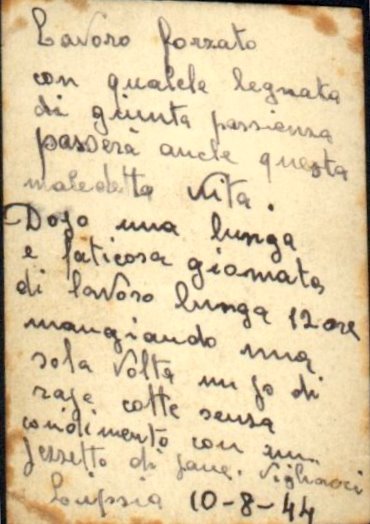 Lavoro forzato
con qualche legnata
di giunta passienza
passerà anche questa
maledetta vita.
Dopo una lunga
e faticosa giornata
di lavoro lunga 12 ore
mangiando una
sola volta un po di
rape cotte senza
condimento con un
pezzetto di pane.
Lipsia 10-8-44